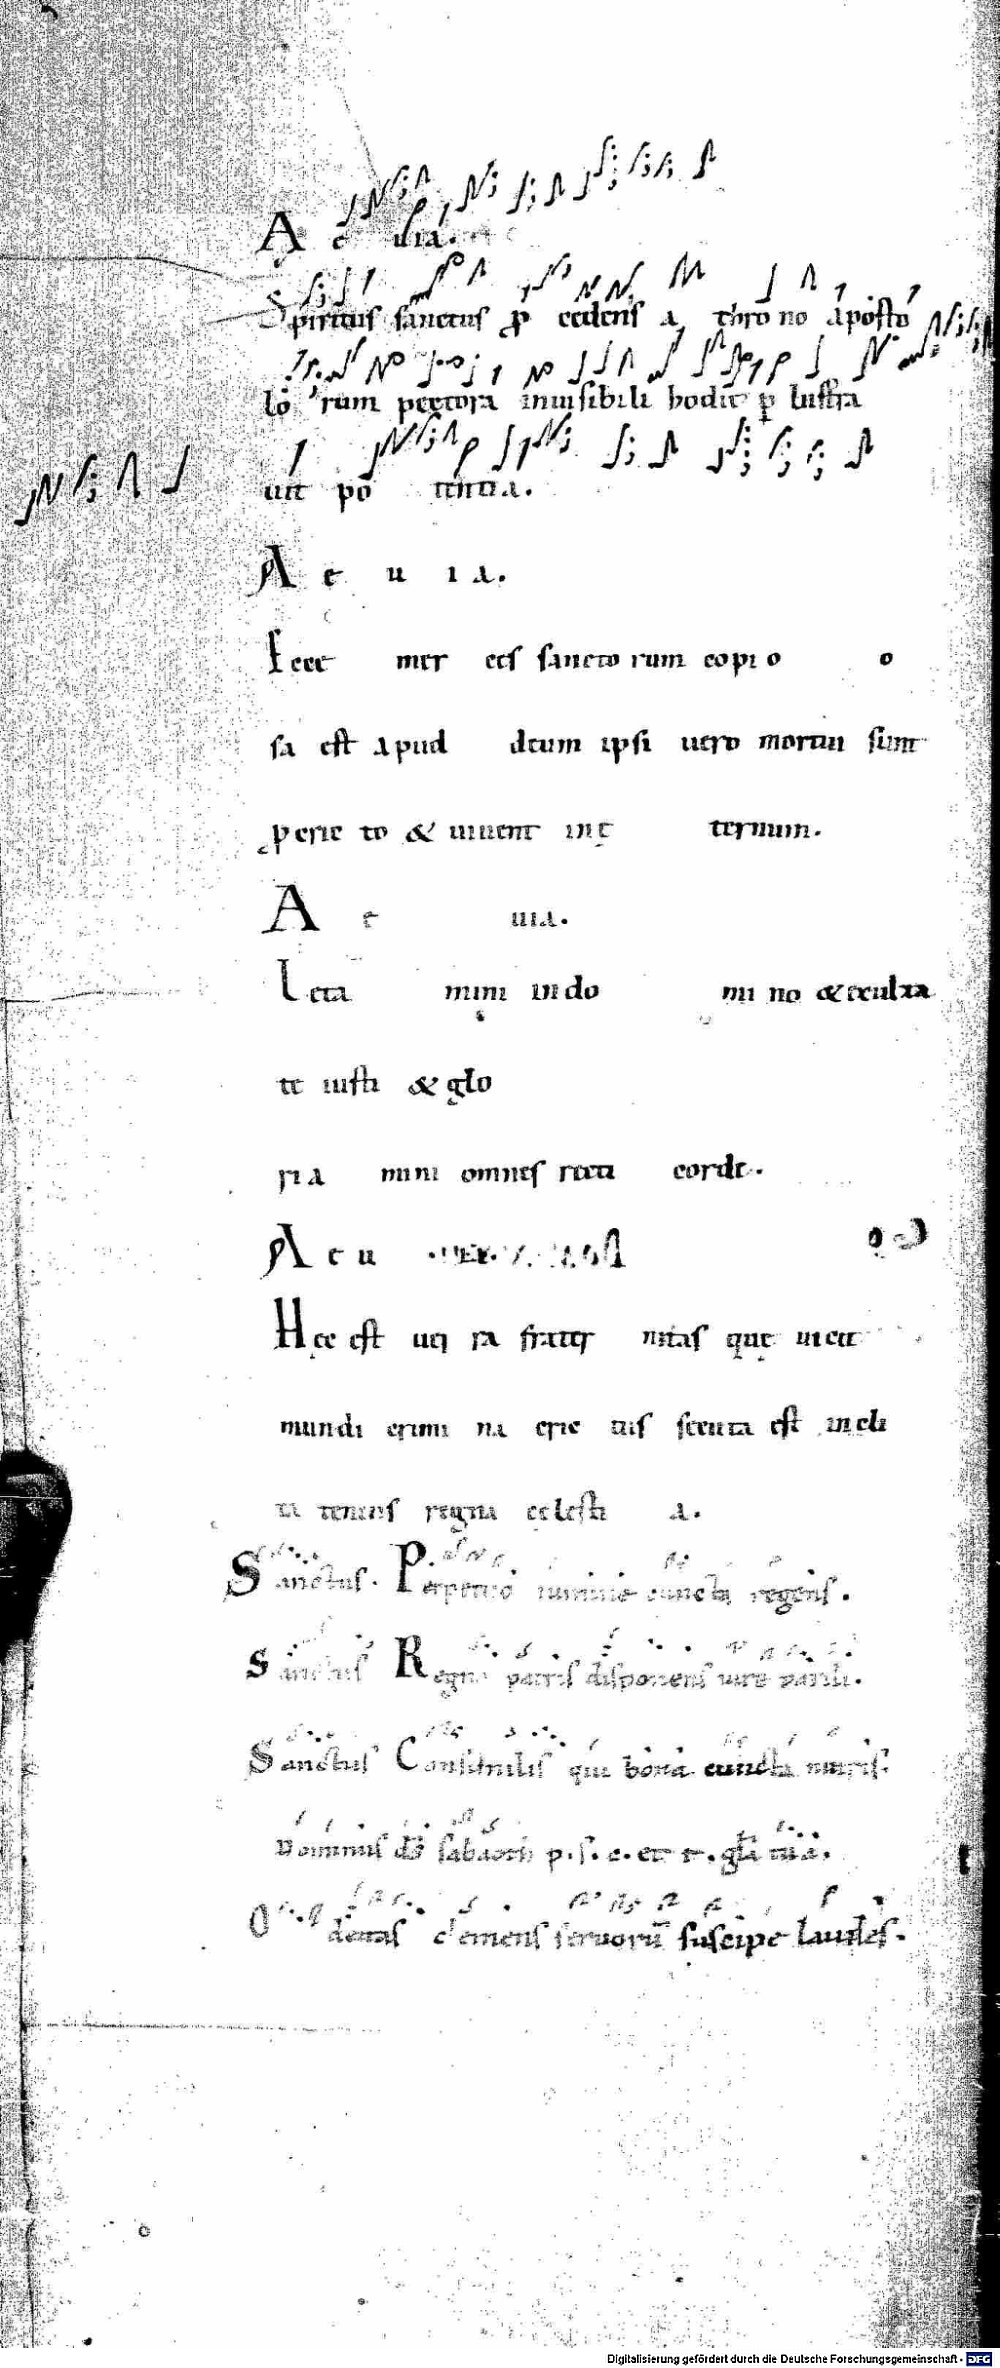 A e uia.
Spiritus sanctus p cedens a thro no aposto
lo rum pectora inuisibili hodie p lustra
uit po tentia.
A e u i a.
Ecce mer ces sancto rum copi o o
sa est apud deum ipsi uero mortui sunt
p crie to & uiuent in ę ternum.
A e uia.
Leta mini in do mi no & exulta
te iusti & glo
ria mini omnes recti corde.
A e u
Hęc est uera frater nitas quę uicit
mundi crimi na crie tus secuta est incli
ta tenens regna celesti a.
Sanctus. Perpetuo numine cuncta regens.
Sanctus Regna patris disponens iure parili.
Sanctus Consimilis qui bona cuncta nutris.
Dominus ds sabaoth p. s. c. et t. gla tua.
O deitas clemens seruoru suscipe laudes.
Digitalisierung gefördert durch die Deutsche Forschungsgemeinschaft - DFG